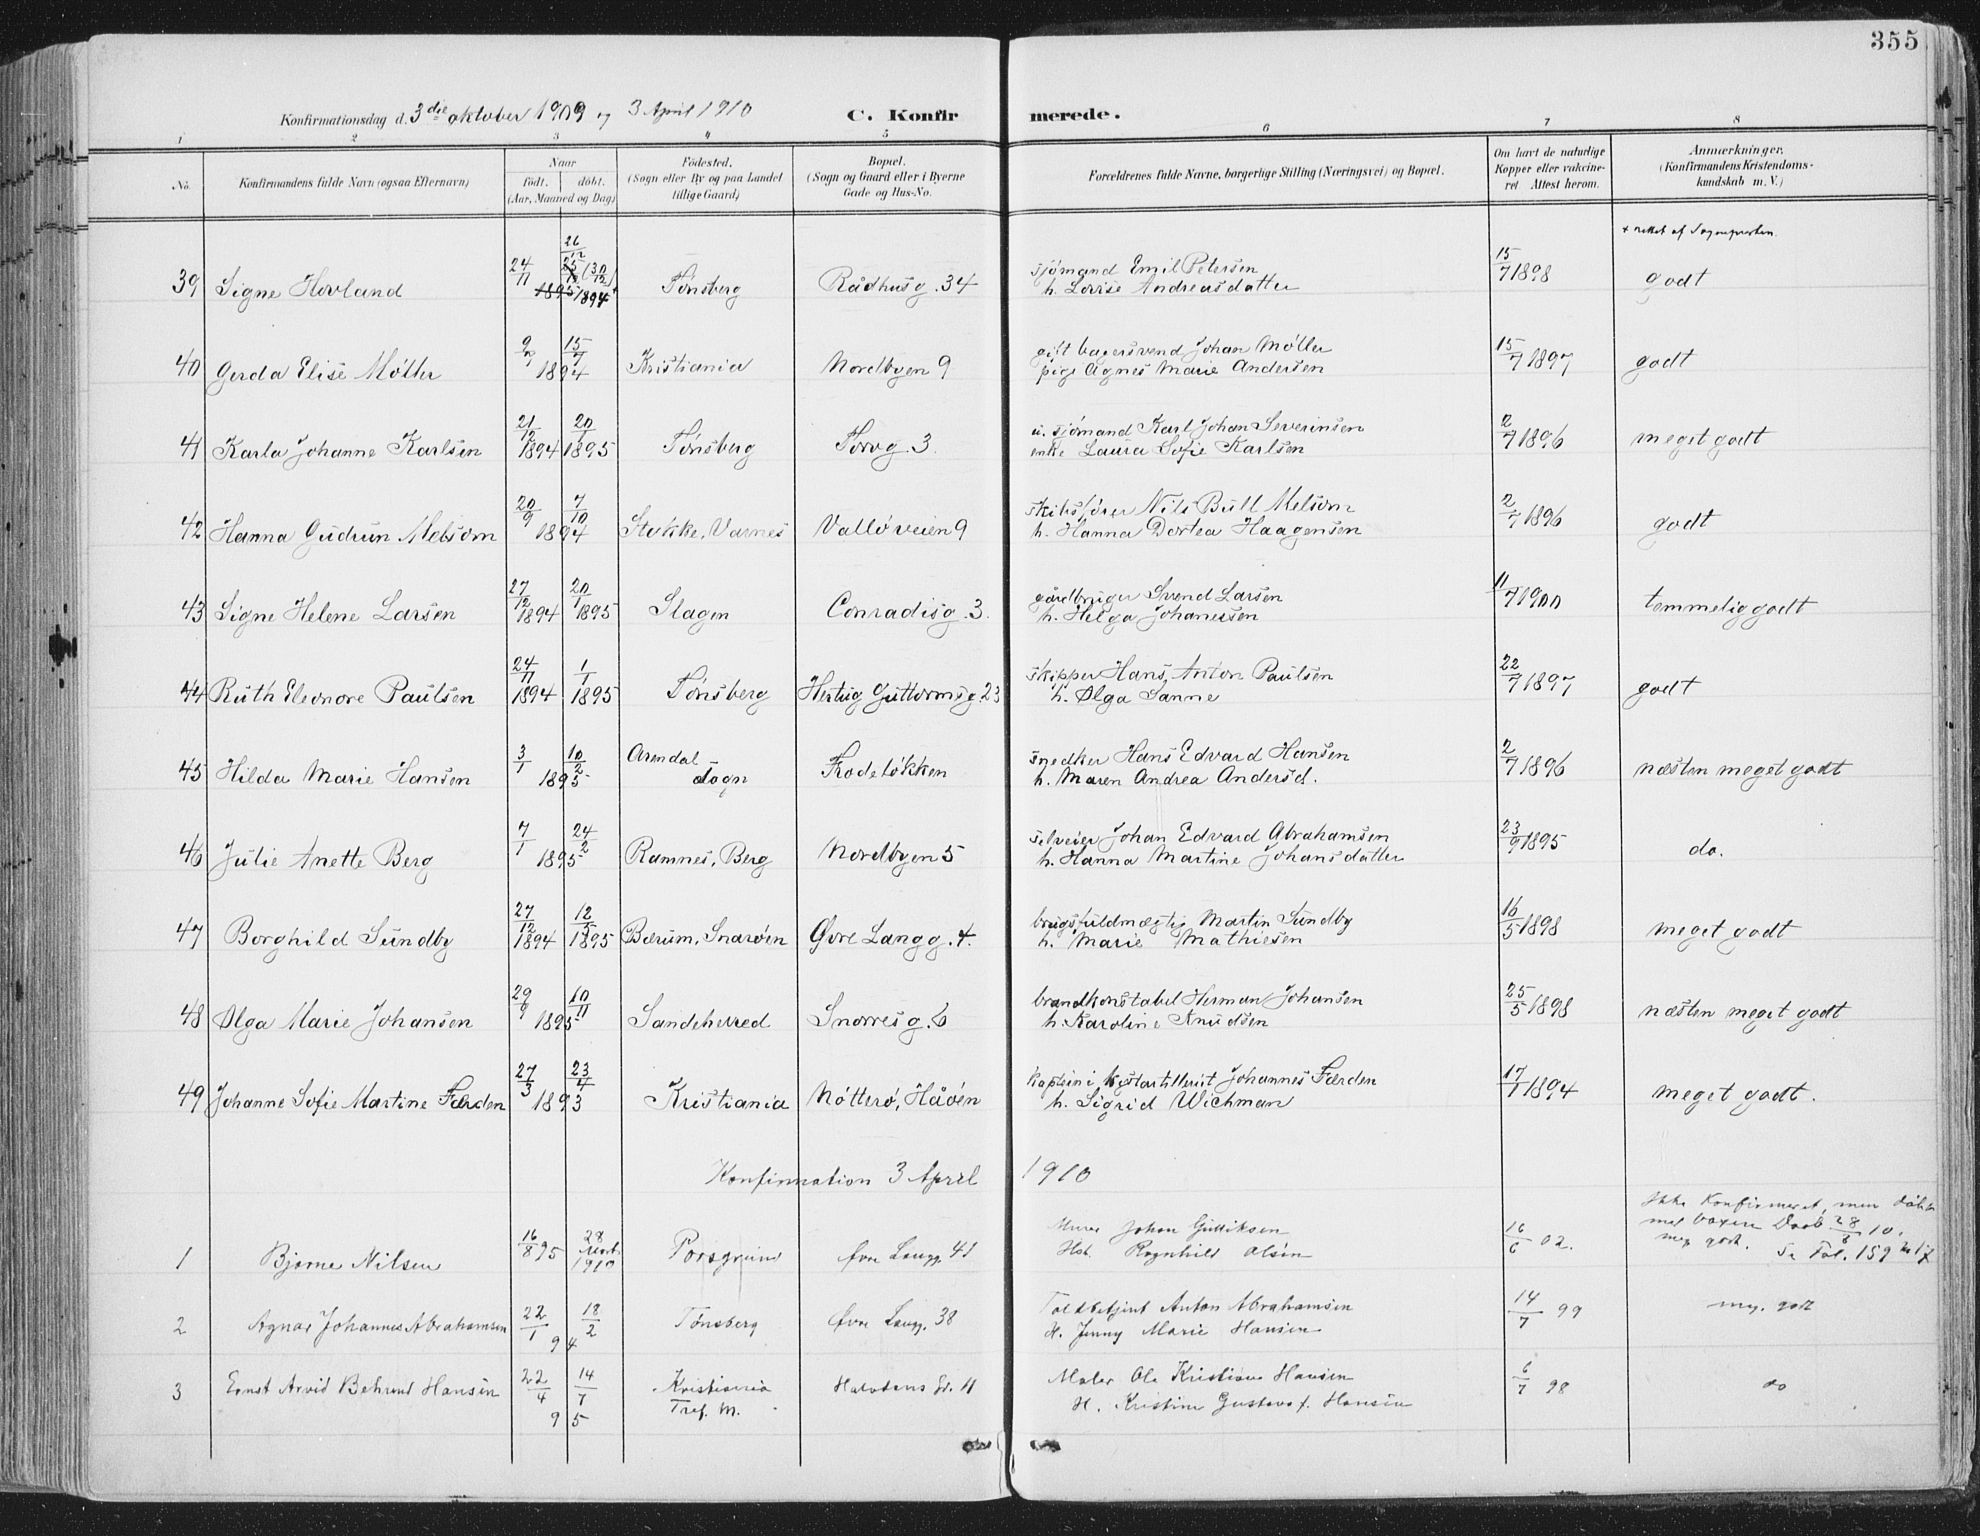 355
Konfirmationsdag d. 3die oktober 1909 og 3 April 1910 C. Konfirmerede.
1 2 3 4 5 6 7 8
No. Konfirmandens fulde Navn (ogsaa Efternavn) Naar født. døbt. (Aar, Maaned og Dag) Fødested. (Sogn eller By og paa Landet tillige Gaard) Bopæl. (Sogn og Gaard eller i Byerne Gade og Hus-No. Forældrenes fulde Navne, borgerlige Stilling (Næringsvei) og Bopæl. Om havt de naturlige Kopper eller vakcineret Attest herom. Anmærkninger. (Konfirmandens Kristendomskundskab m. V.)
+ rettet af Sognepresten.
39 Signe Hovland 24/11 26/12 (30/12) 1895 1894+ Tønsberg Rådhusg. 34 sjømand Emil Petersen 15/7 1898 godt
h. Lovise Andreasdatter
40 Gerda Elise Møller 9/7 15/7 1894 Kristiania Nordbyen 9 gift bagersvend Johan Møller 15/7 1897 godt
pige Agnes Marie Andersen
41 Karla Johanne Karlsen 21/12 1894 20/1 1895 Tønsberg Torvg. 3 u. sjømand Karl Johan Severinsen 2/7 1896 meget godt
enke Laura Sofie Karlsen
42 Hanna Gudrun Melsom 20/9 7/10 1894 Stokke, Varnes Valløveien 9 skibsfører Nils Bull Melsom 2/7 1896 godt
h. Hanna Dortea Haagensen
43 Signe Helene Larsen 27/12 1894 20/1 1895 Slagen Conradisg. 3. gårdbruger Svend Larsen 11/7 1900 temmelig godt
h. Helga Johanessen
44 Ruth Eleonore Paulsen 24/11 1894 1/1 1895 Tønsberg Hertug Guttormsg. 23 skipper Hans Anton Paulsen 22/7 1897 godt
h. Olga Sanne
45 Hilda Marie Hansen 3/1 10/2 1895 Arendal sogn Frodeløkken snedker Hans Edvard Hansen 2/7 1896 næsten meget godt
h. Maren Andrea Andersd.
46 Julie Anette Berg 7/1 24/2 1895 Ramnes, Berg Nordbyen 5 selveier Johan Edvard Abrahamsen 23/9 1895 do.
h. Hanna Martine Johansdatter
47 Borghild Sundby 27/12 1894 12/5 1895 Bærum, Snarøen Øvre Langg. 4. brugsfuldmægtig Martin Sundby 16/5 1898 meget godt
h. Marie Mathiesen
48 Olga Marie Johansen 29/9 10/11 1895 Sandeherred Snorresg. 6 brandkonstabel Herman Johansen 25/5 1898 næsten meget godt
h. Karoline Knudsen
49 Johanne Sofie Martine Færden 27/3 23/4 1893 Kristiania Nøtterø, Håøen kaptein i kystartilleriet Johannes Færden 17/1 1894 meget godt.
h. Sigrid Wichman
Konfirmation 3 April 1910
1 Bjarne Nilsen 16/8 95 28 1910 Porsgrund Øvre Langg. 41 Murer Johan Gulliksen 16/6 02. Ikke Konfirmeret, men døbt
Hst. Ragnhild Olsen med voxen Daab 28/3 10.
meg. godt. Se Fol. 159
2 Agnar Johannes Abrahamsen 22/1 18/2 94 Tønsberg Øvre Langg. 38 Toldbetjent Anton Abrahamsen 14/7 99 meg. godt
H. Jenny Marie Hansen
3 Ernst Arvid Behrent Hansen 22/4 14/7 95 Kristiania Tref. M. Halvdans Gd. 11 Maler Ole Kristian Hansen 6/7 98 do
H. Kristine Gustava f. Hansen